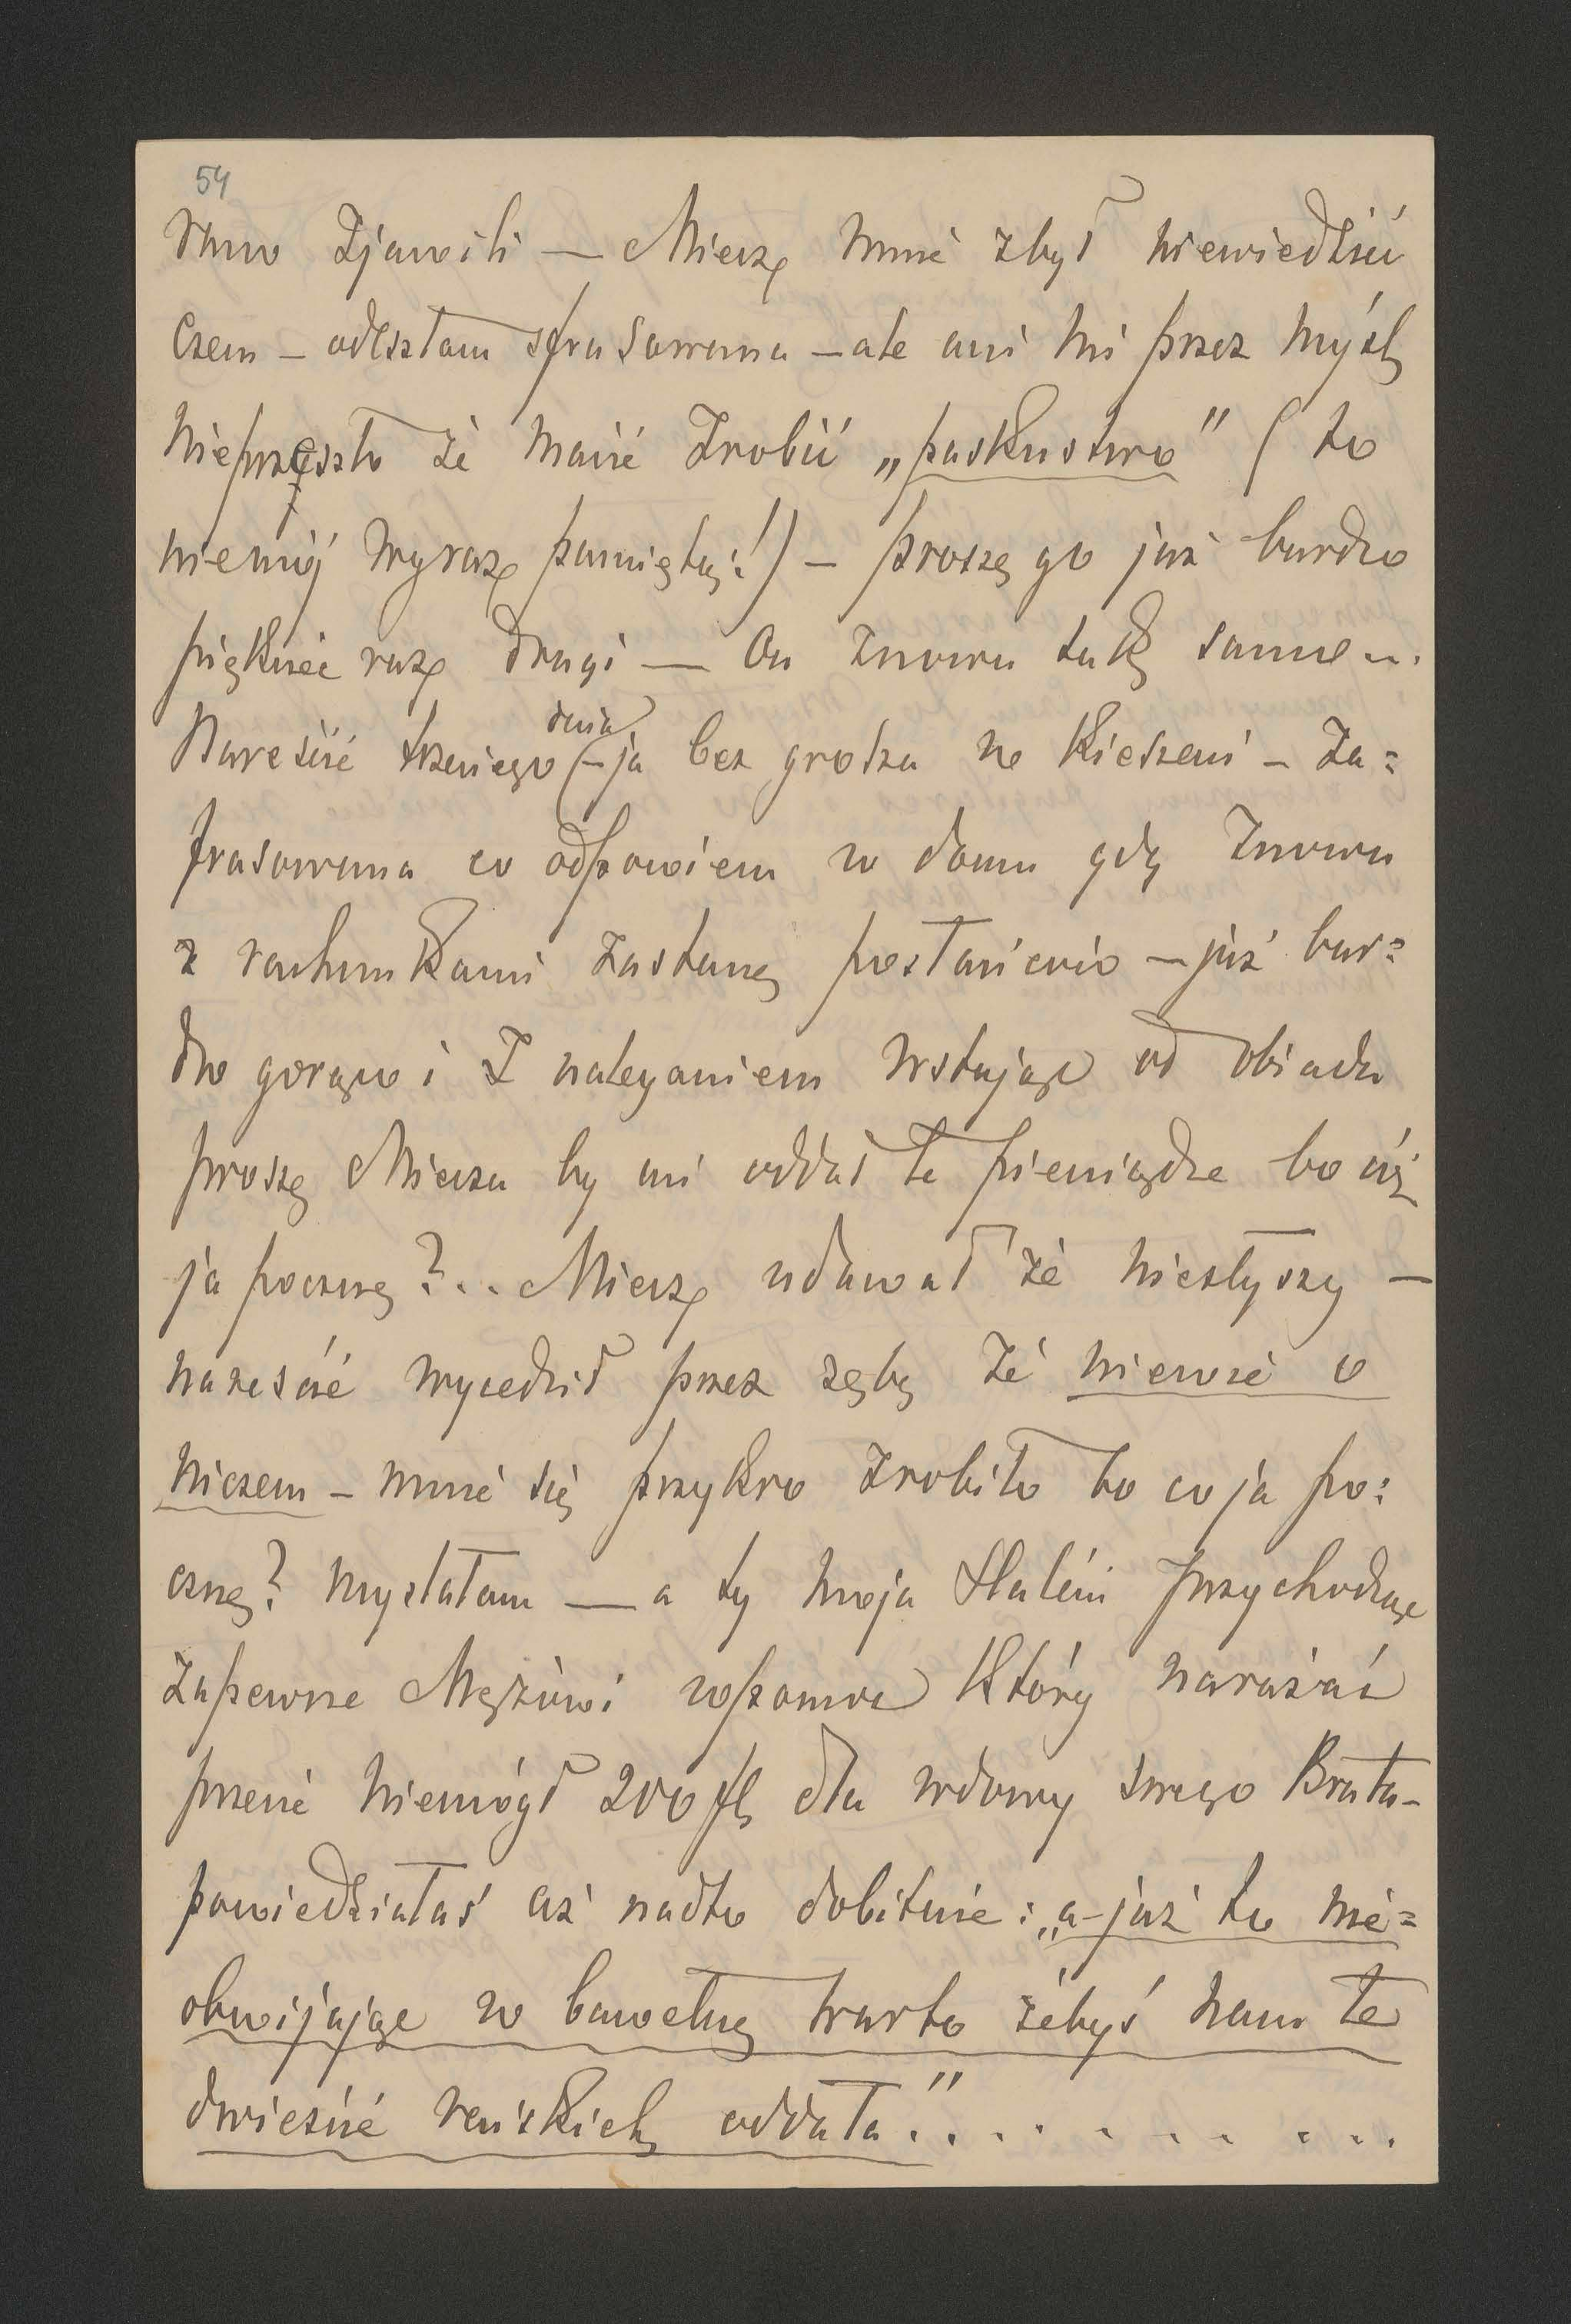 54
rano zjawili — Miecz mnie zbył niewiedzieć
czem — odeszłam sfrasowana — ale ani mi przez myśl
nieprzeszło że macie zrobić „paskustwo" (to
niemój wyraz pamiętaj!) — proszę go już bardzo
pięknie raz drugi — On znowu tak samo...
Nareście trzeciego dnia — ja bez grosza w kieszeni — za=
frasowana co odpowiem w domu gdy znowu
z rachunkami zastanę posłańców — już bar=
dzo gorąco i z naleganiem wstając od obiadu
proszę Miecza by mi oddał te pieniądze bo cóż
ja pocznę?... Miecz udawał że niesłyszy —
nareście wycedził przez zęby że niewie o
niczem — mnie się przykro zrobiło bo co ja po=
cznę? myslałam — a ty moja Haleńi przychodząc
zapewne Mężowi wpomoc który narażać
przecie niemógł 200 fl dla wdowy swego Brata —
powiedziałaś aż nadto dobitnie: „a-już to nie=
obwijając w bawełnę warto żebyś nam te
dwieście reńskich oddała"..........